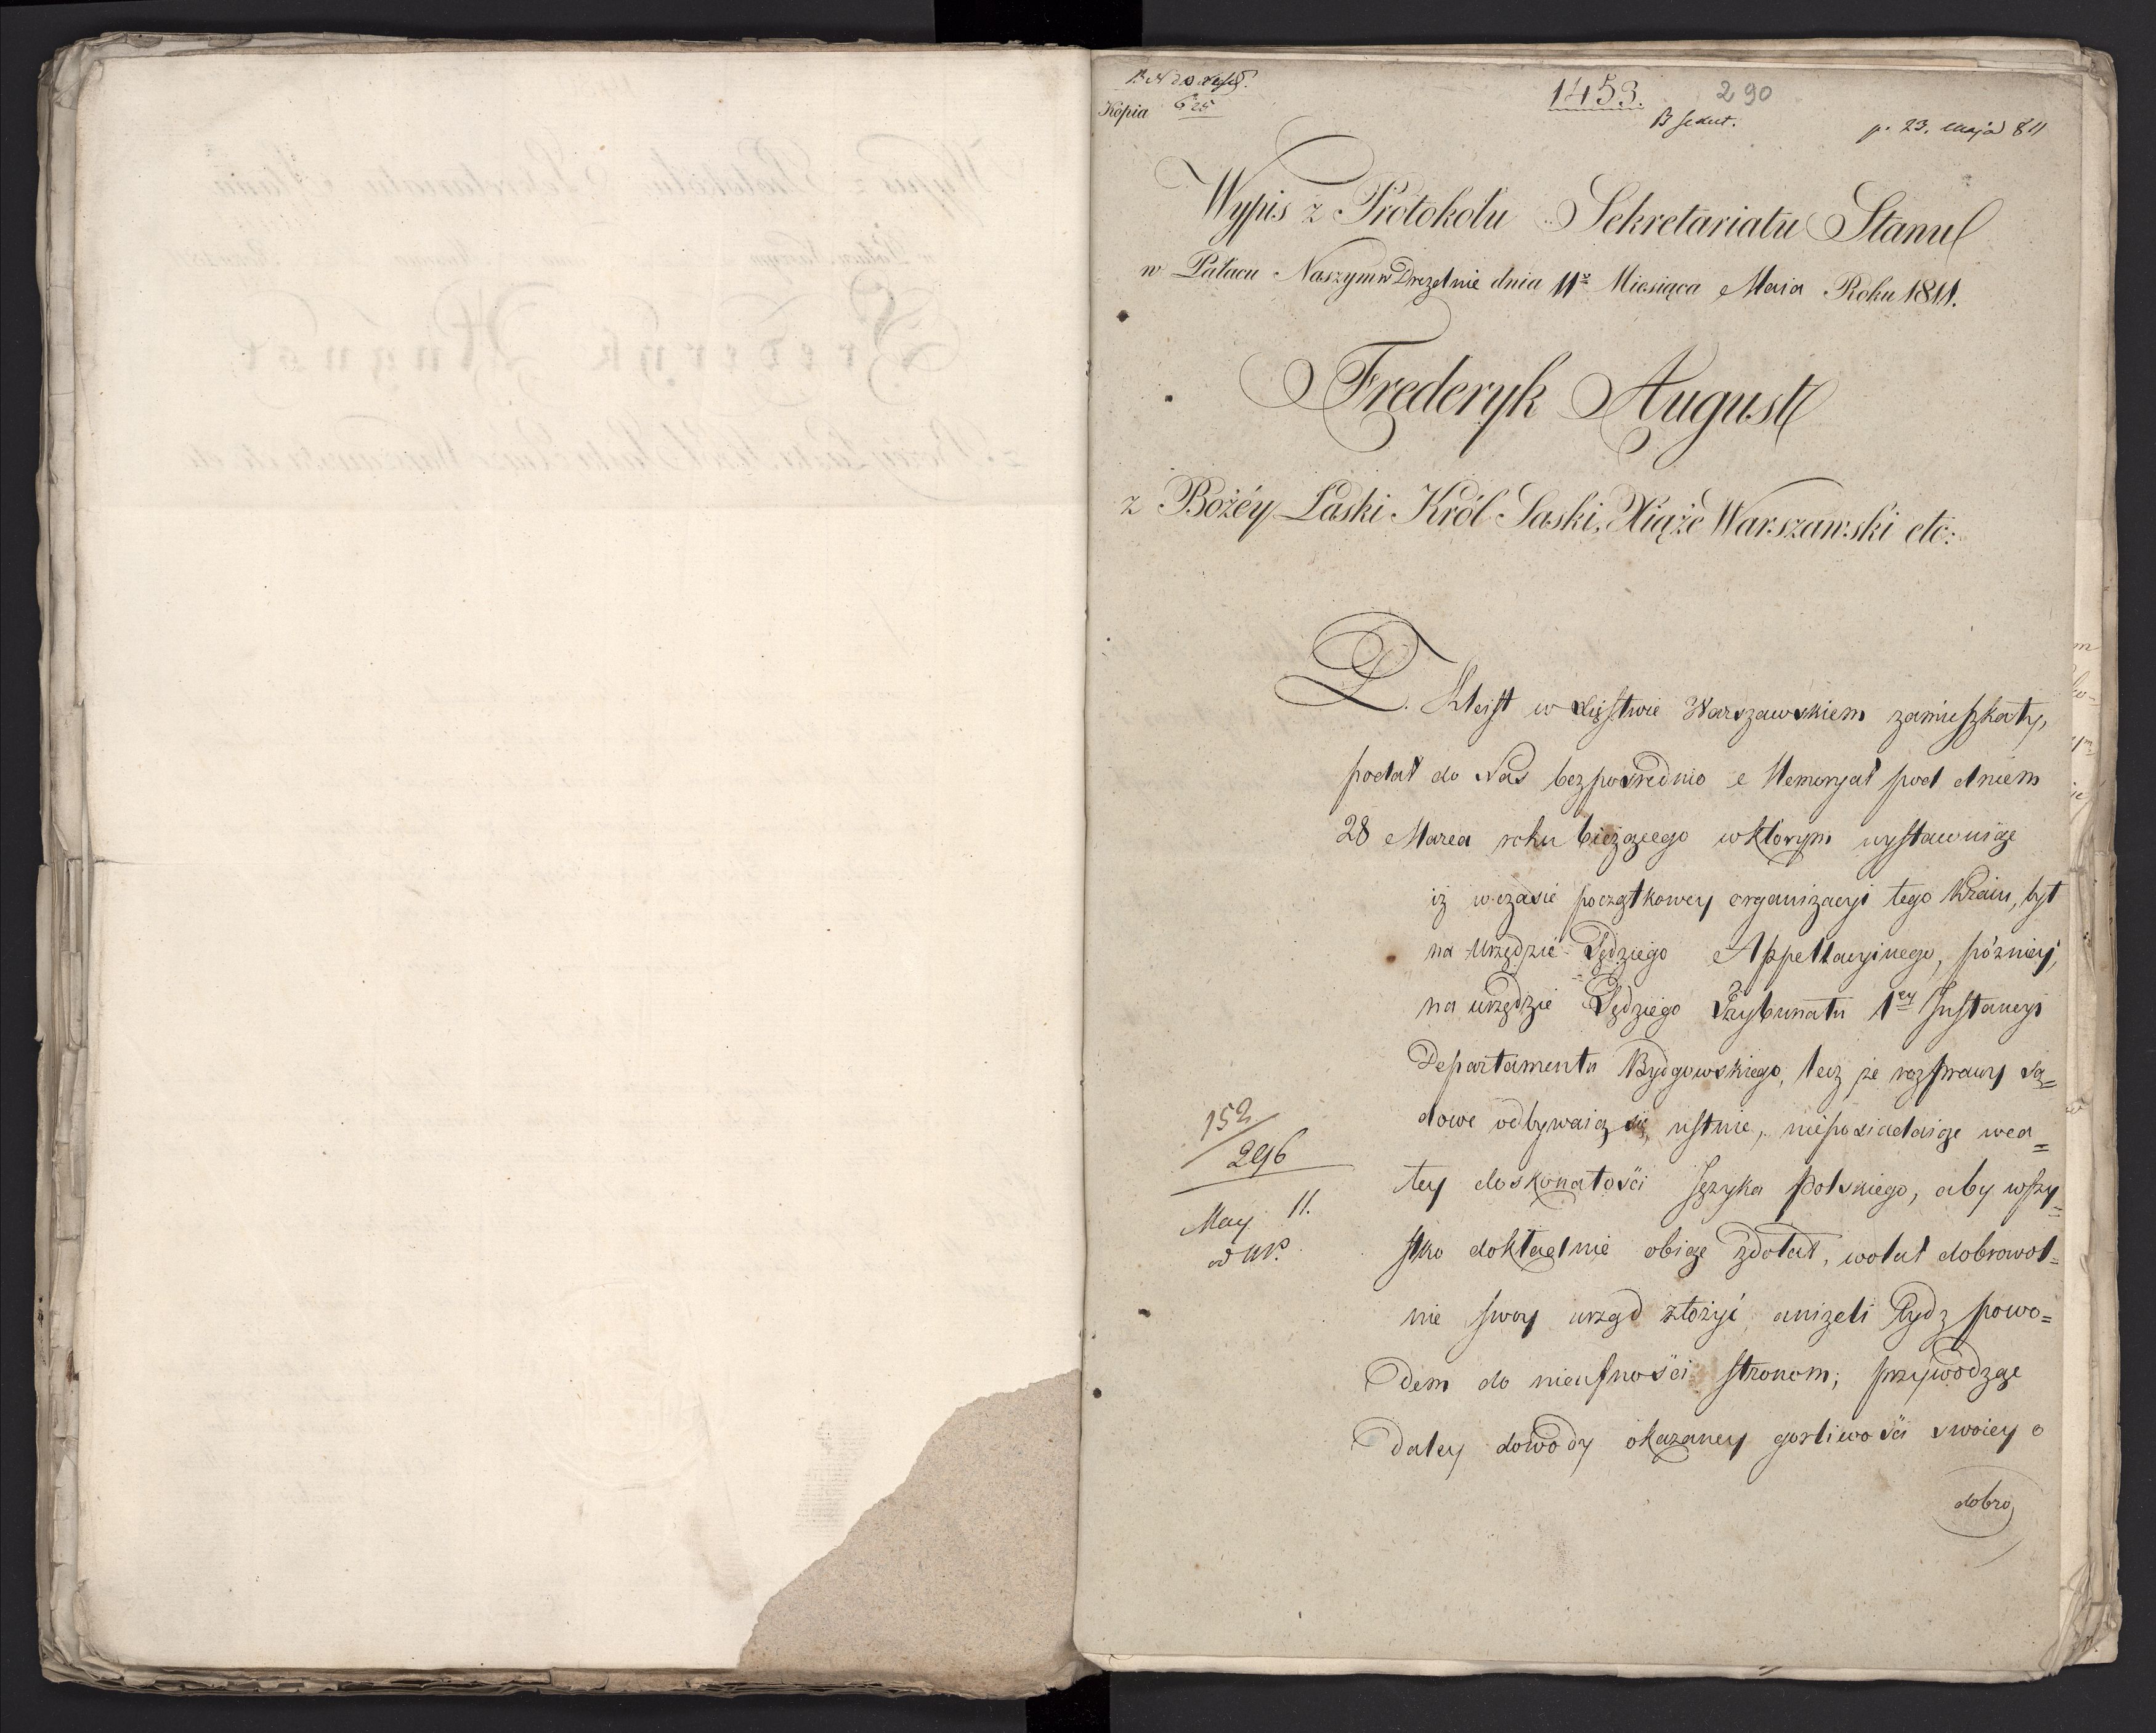 Kopia
1453.
290
p. 23. maja 811
Wypis z Protokołu Sekretariatu Stanu
w Pałacu Naszym w Dreznie dnia 11º Miesiąca Maia Roku 1811.
Frederyk August
z Bożéy Łaski Król Saski, Xiąże Warszawski etc:
D. Kleist w Xięstwie Warszawskiem zamieszkały,
podał do Nas bezpośrednio Memoryał pod dniem
28 Marca roku bieżącego w ktorym wystawuiąc
iż w czasie początkowey organizacyi tego Kraiu, był
na Urzędzie Sędziego Appellacyinego, późniey,
na urzędzie Sędziego Trybunału 1ey Instancyi
Departamentu Bydgowskiego, lecz że rozprawy są=
dowe odbywaią się ustnie, nieposiadaiąc w ca=
łey doskonałości Języka Polskiego, aby wszy=
stko dokładnie obiąć zdołał, wolał dobrowol=
nie swoy urząd złożyć, aniżeli bydz powo=
dem do nieufności stronom; przywodząc
daley dowody okazaney gorliwości swoiey o
dobro
152
296
May 11.